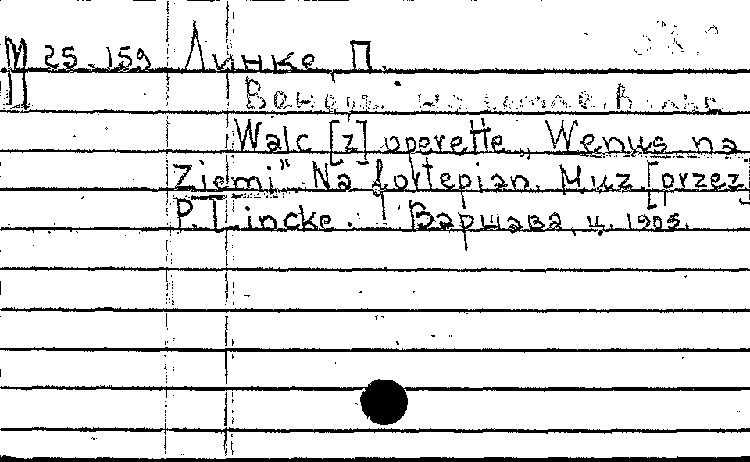 М 25.159 Линке, П.
Венера на земле. Вальс
Walc [z] operette „Wenus na
Ziemi". Na fortepian. Muz. [przez]
P. Lincke. Варшава, ц. 1905.